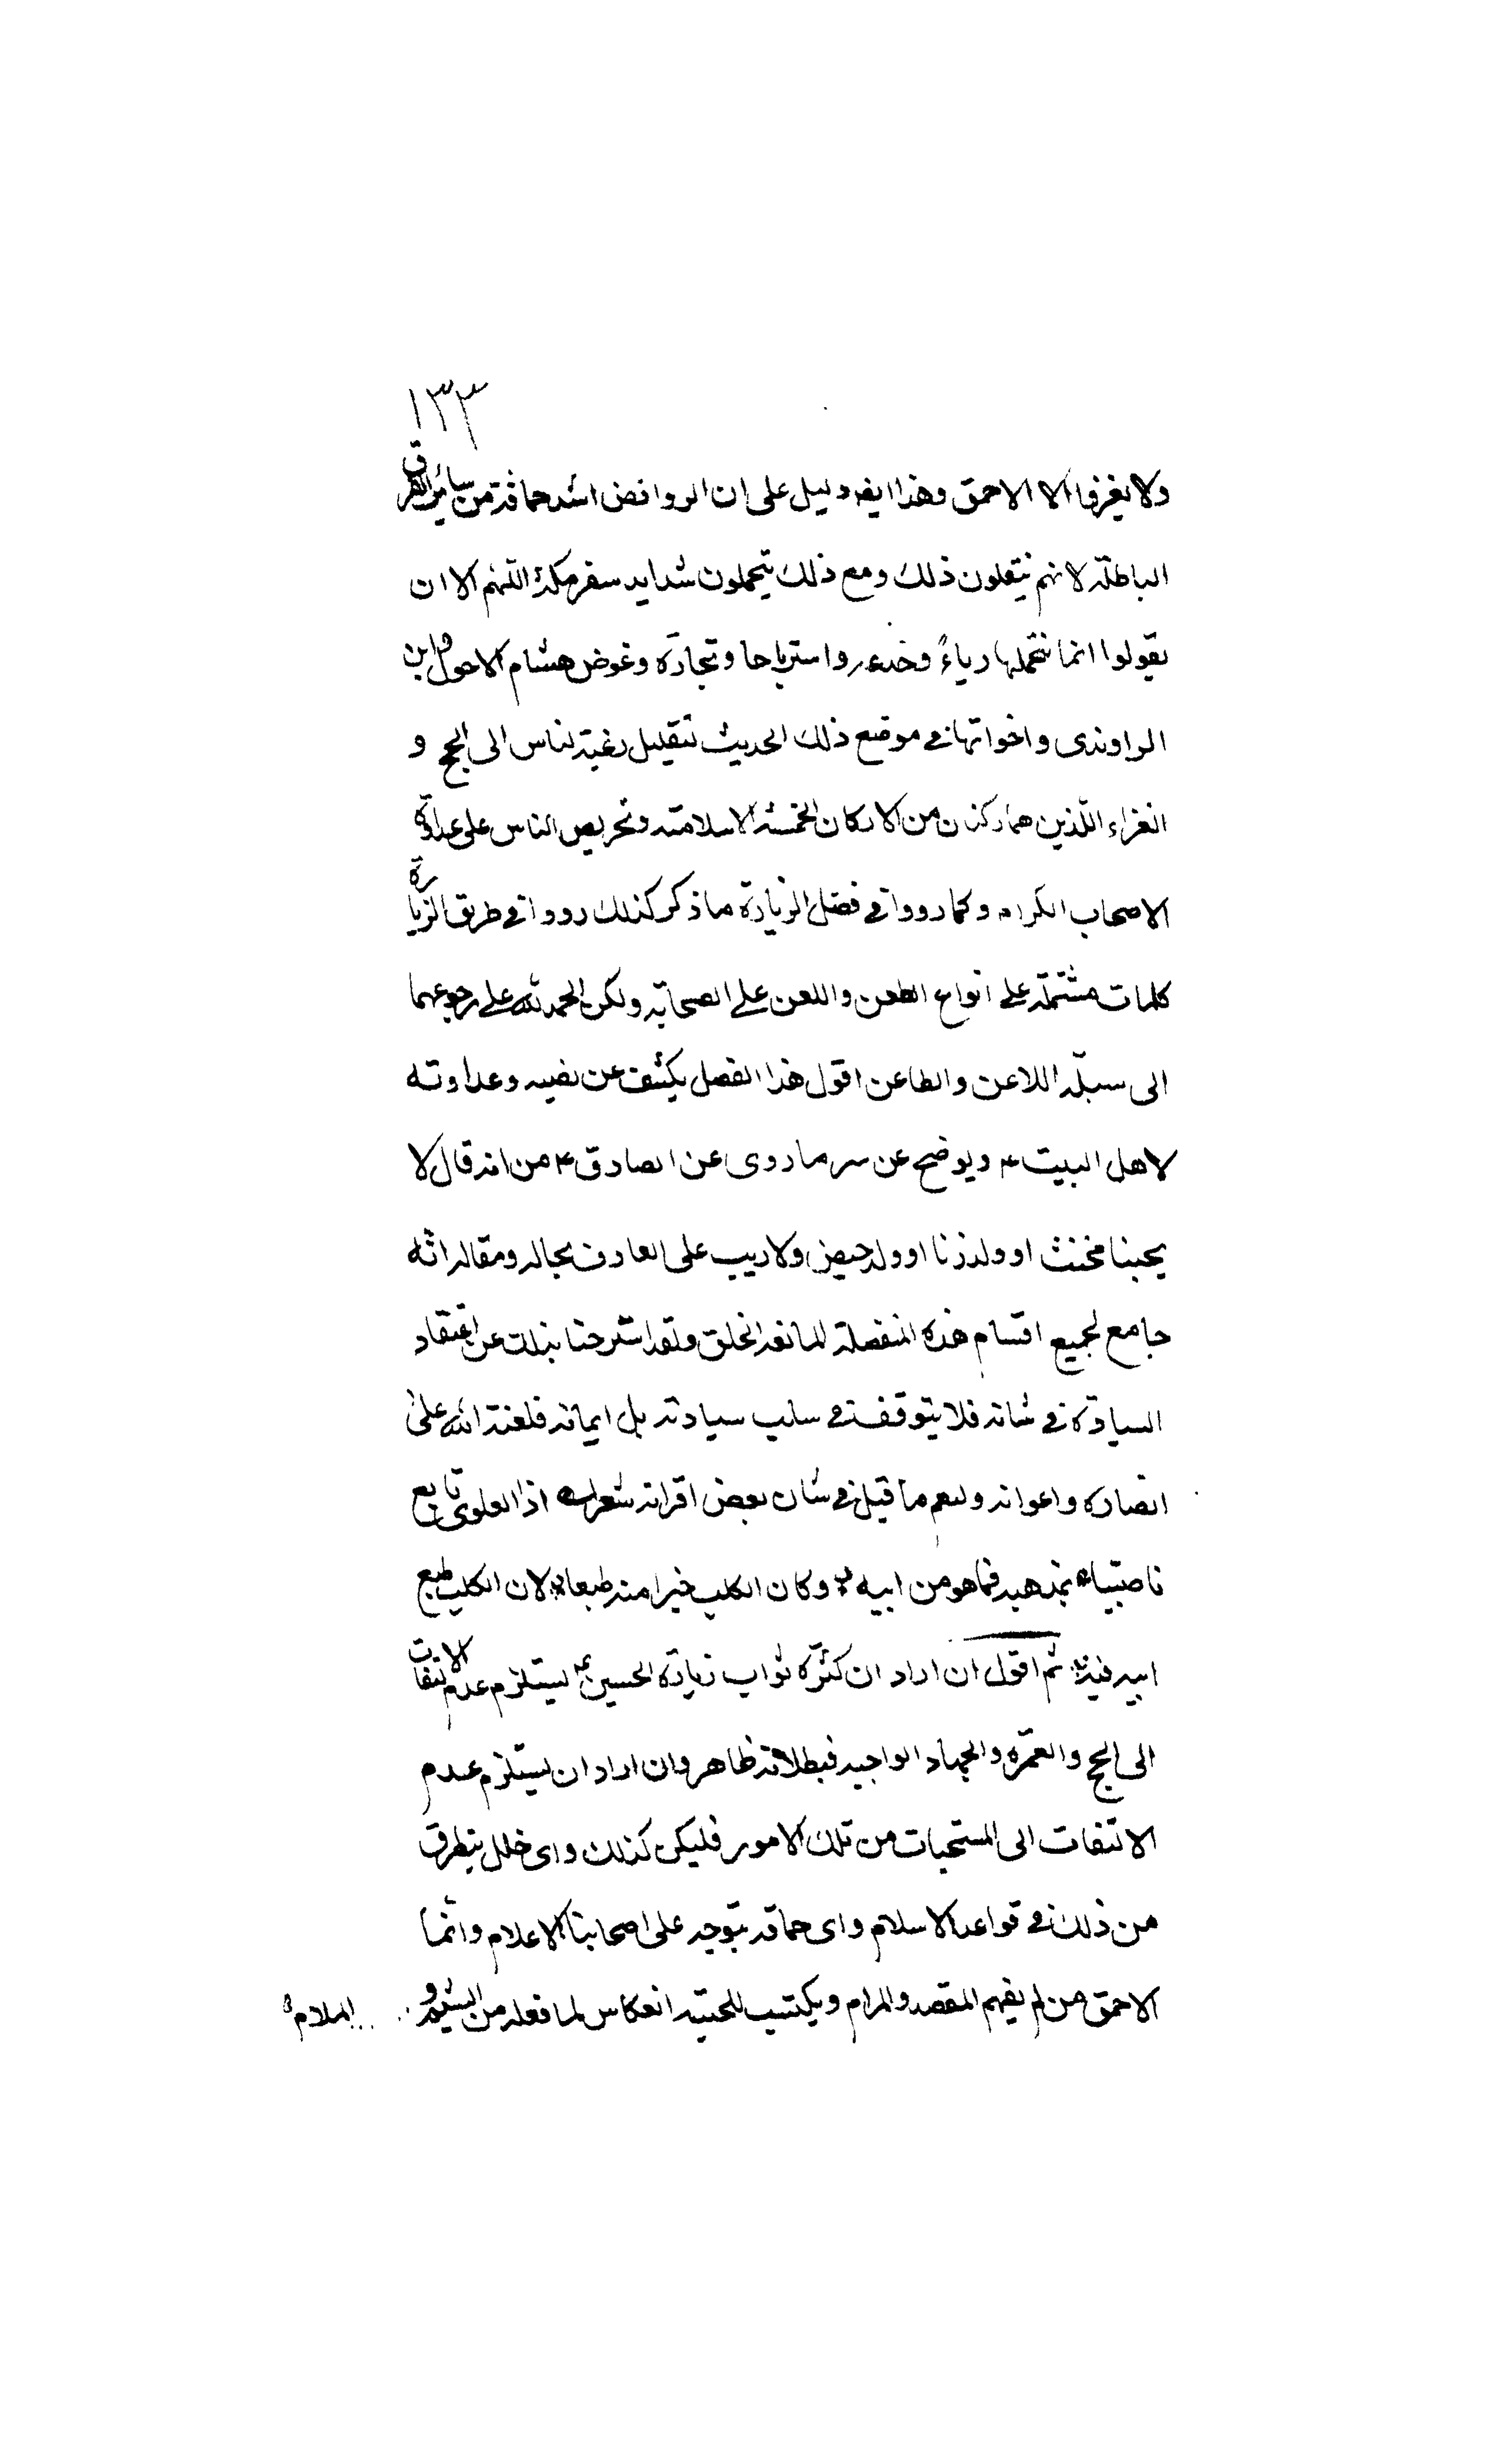 ١٣٣
ولا يغزو الا الاحمق وهذا ايضا دليل على ان الروافض اشد حماقة من سائر الفرق
الباطلة لانهم ينقلون ذلك ومع ذلك يتحملون شدايد سفر مكة اللهم الا ان
يقولوا انما نتحملها رياءً وخدعة واسترباحا وتجارة وغرض هشام الاحول وابن
الراوندى واخواتها فى موضع ذلك الحديث تقليل رغبة الناس الى الحج و
الغزاء اللذين هما ركنان من الاركان الخمسة الاسلامية وتحريص الناس على عداوة
الاصحاب الكرام وكما رووا فى فضل الزيارة ما ذكر كذلك رووا فى طريق الزيارة
كلمات مشتملة على انواع الطعن واللعن على الصحابة ولكن الحمد لله على رجوعهما
الى سبلة اللاعن والطاعن اقول هذا الفصل يكشف عن نصبه وعداوته
لاهل البيت ع ويوضح عن سر ما روى عن الصادق ع من انه قال لا
يحبنا مخنث او ولد زنا او ولد حيض ولا ريب على العارف بحاله ومقاله انه
جامع لجميع اقسام هذه المنفصلة المانعة الخلو ولقد استرحنا بذلك عن اعتقاد
السيادة فى شانه فلا يتوقف فى سلب سيادته بل ايمانه فلعنة الله على
انصاره واعوانه ولنعم ما قيل فى شان بعض اقرانه شعر اذا العلوى تابع
ناصبيا بمذهبه فما هو من ابيه وكان الكلب خيرا منه طبعا لان الكلب طبع
ابيه فيه ثم اقول ان اراد ان كثرة ثواب زيارة الحسين ع يستلزم عدم الالتفات
الى الحج والعمرة والجهاد الواجبة فبطلانه ظاهر وان اراد ان يستلزم عدم
الالتفات الى المستحبات من تلك الامور فليكن كذلك واى خلل يتطرق
من ذلك فى قواعد الاسلام واى حماقة يتوجه على اصحابنا الاعلام وانما
الاحمق من لم يفهم المقصد والمرام ويكتسب للحيته انعكاس لما فعله من الشيد و الملام